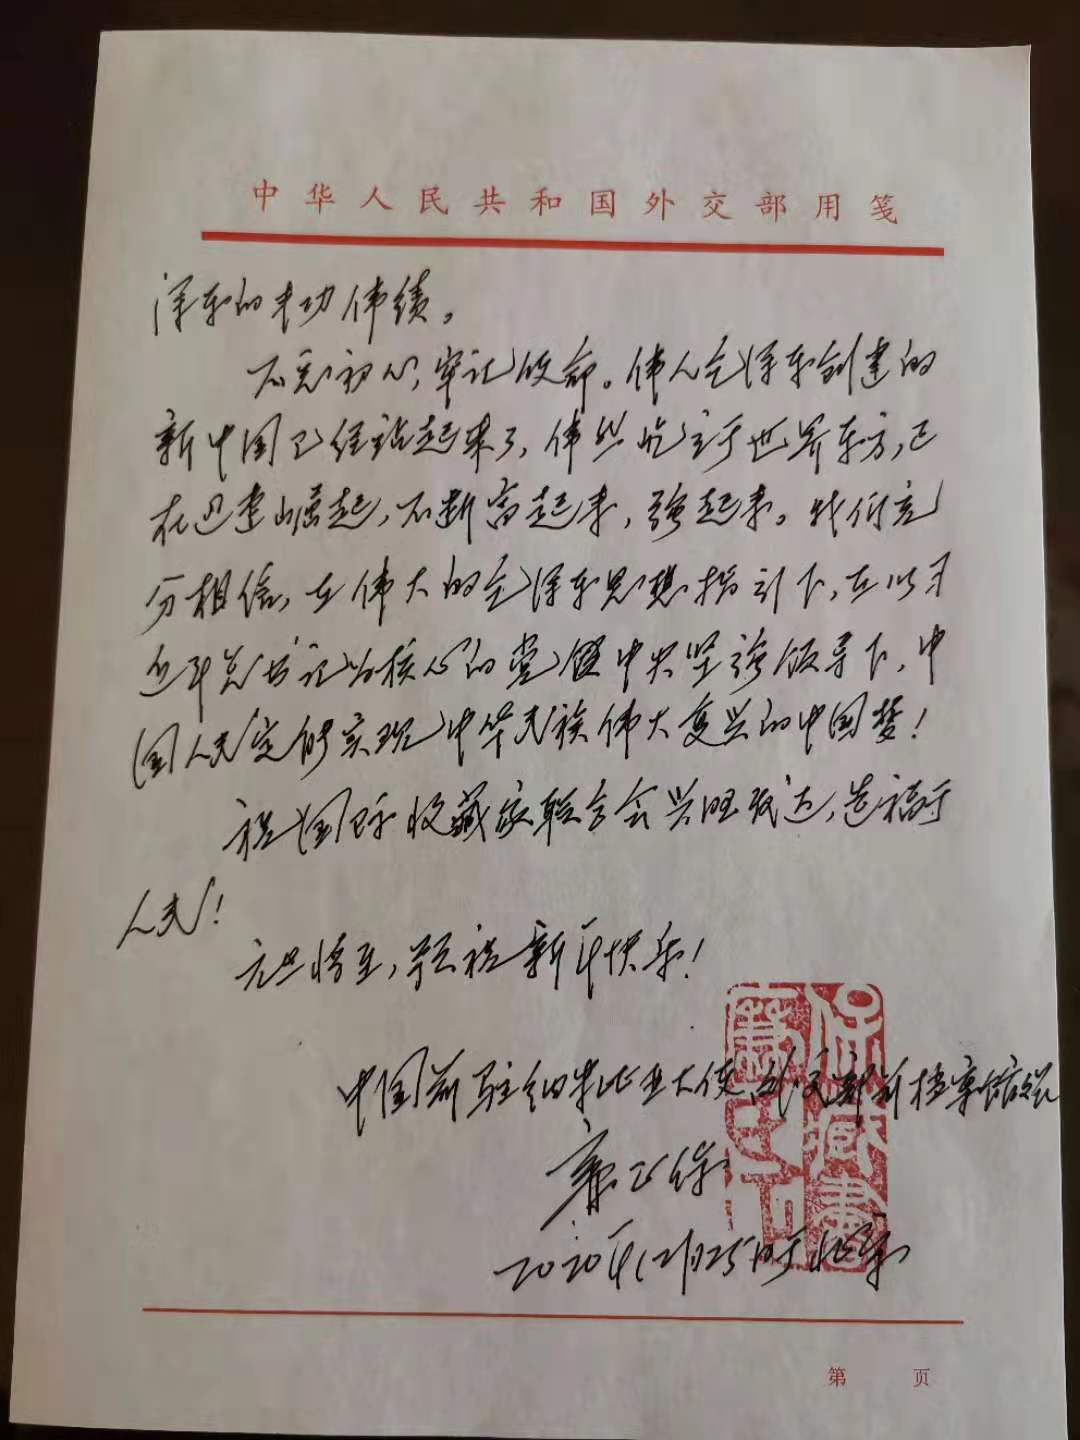 中华人民共和国外交部用笺
泽东的丰功伟绩。
不忘初心，牢记使命。伟人毛泽东创建的
新中国已经站起来了，伟然屹立于世界东方，正
在迅速崛起，不断富起来，强起来。我们充
分相信，在伟大的毛泽东思想指引下，在以习
近平总书记为核心的党中央坚强领导下，中
国人民定能实现中华民族伟大复兴的中国梦！
祝国际收藏家联合会兴旺发达，造福于
人民！
元旦将至，预祝新年快乐！
中国前驻纳米比亚大使 外交部前档案馆馆长
廉正保
2020年12月25日于北京
第 页